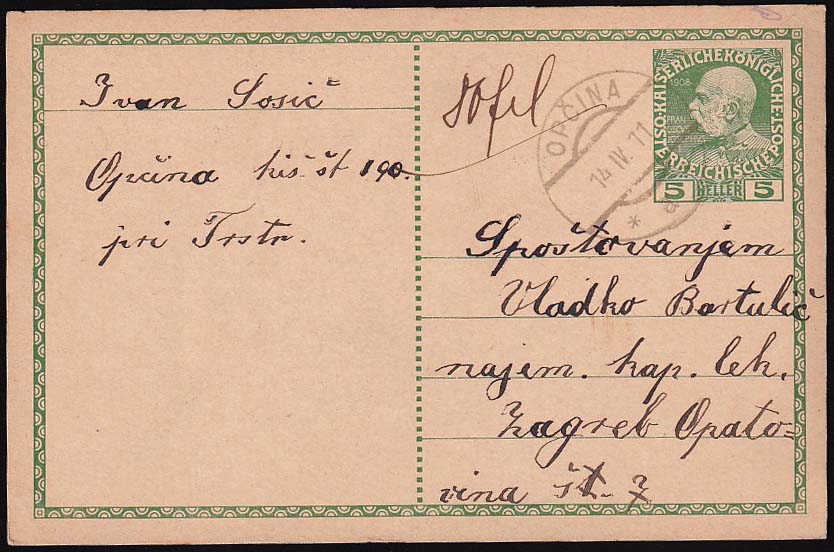 Ivan Sosič
Općina hiš. št 190.
pri Trstr.
OPČINA
14 IV. 11
* a
KAISERLICHE KÖNIGLICHE ÖSTERREICHISCHE POST
1908
5 HELLER 5
Spoštovanjem
Vladko Bartulić
najem. kap. lek.
Zagreb Opato=
vina št. 7